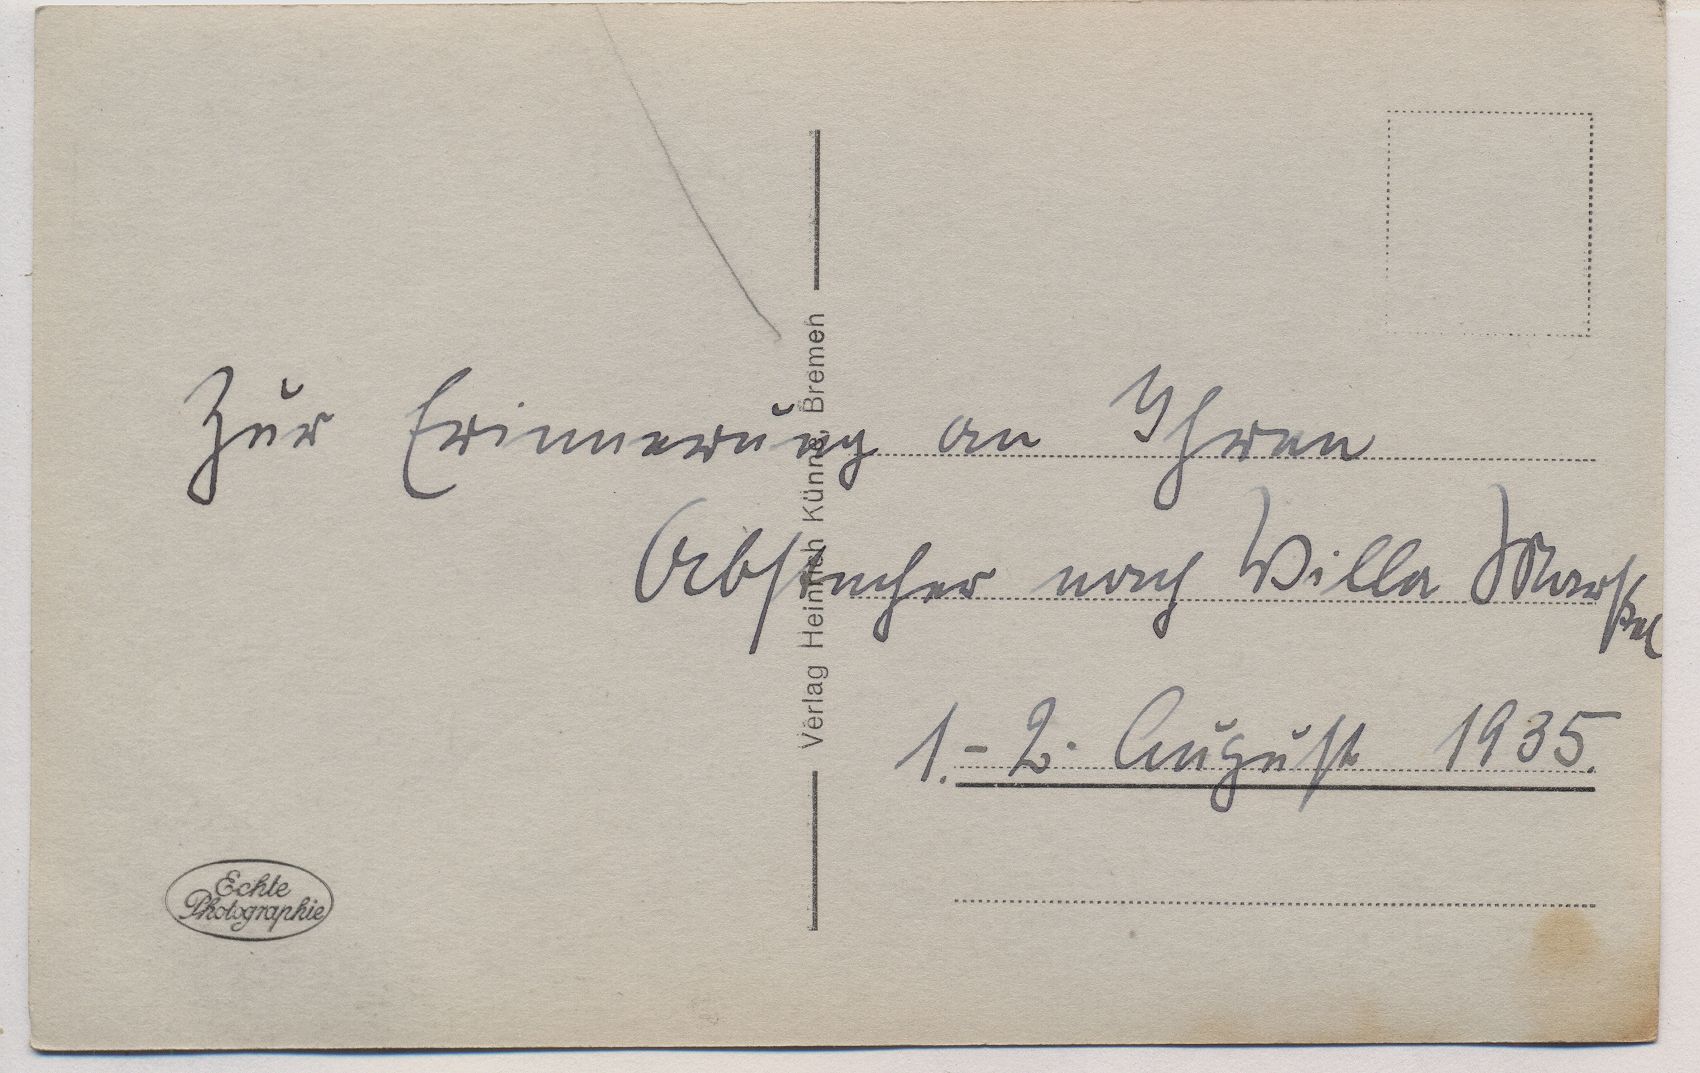 Zur Erinnerung an Ihren
Abstecher nach Villa
1.-2. August 1935.
Verlag Heinrich Künne, Bremen
Echte
Photographie